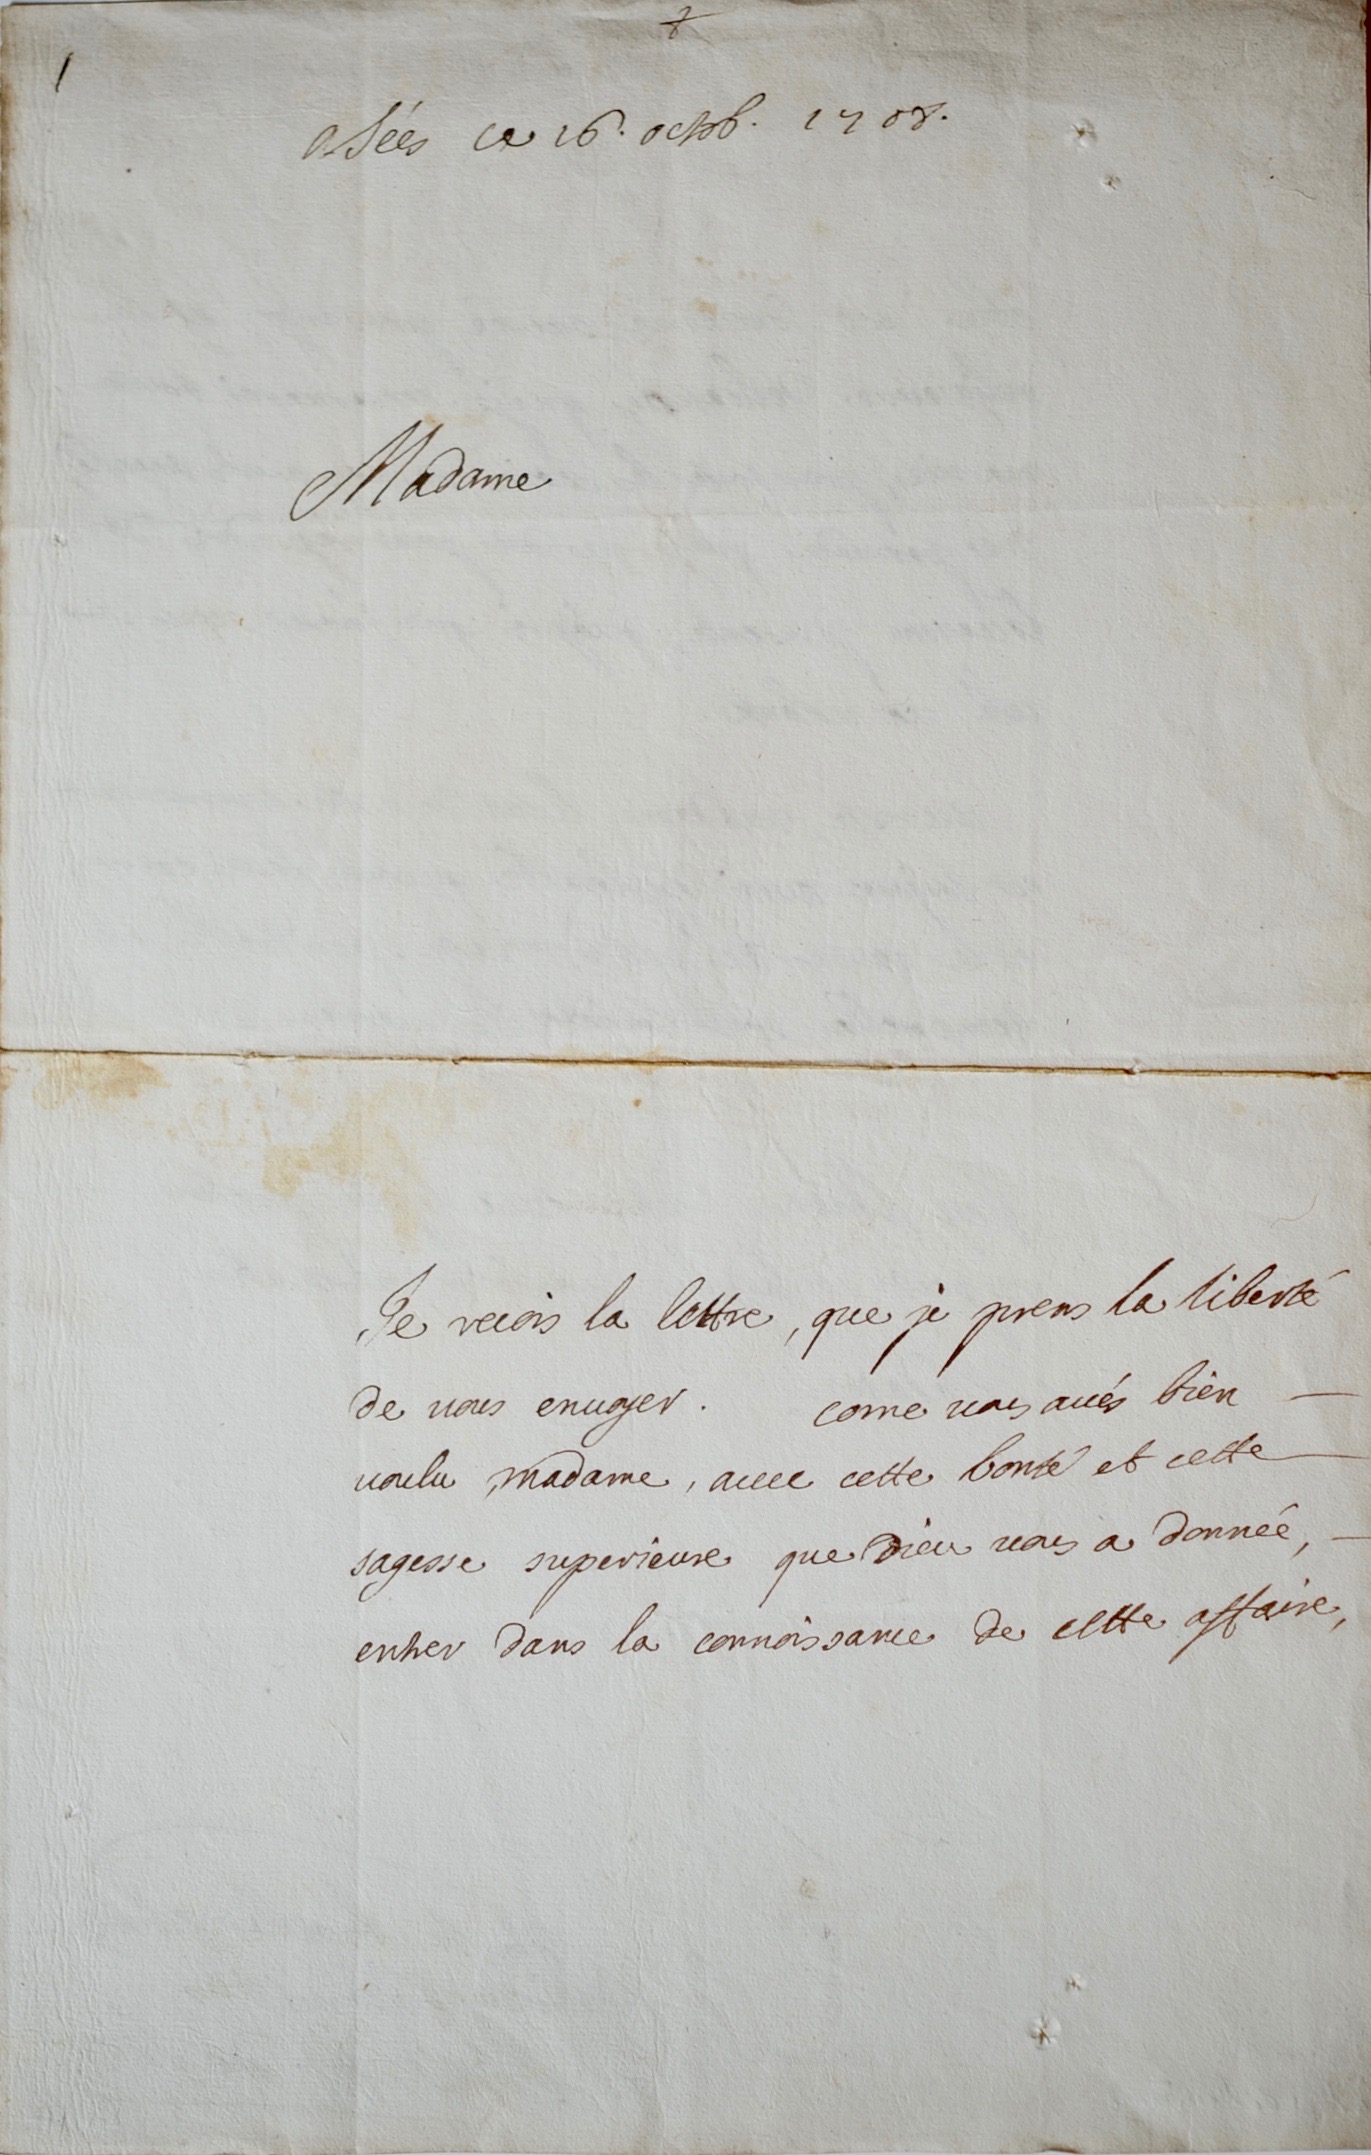 a Séés ce 16. octob. 1708.
Madame
Je recois la lettre, que je prens la liberté
de vous envoyer. come vous avés bien
voulu, madame, avec cette bonté et cette
sagesse superieure que Dieu vous a donnée,
entrer dans la connoissance de cette affaire,